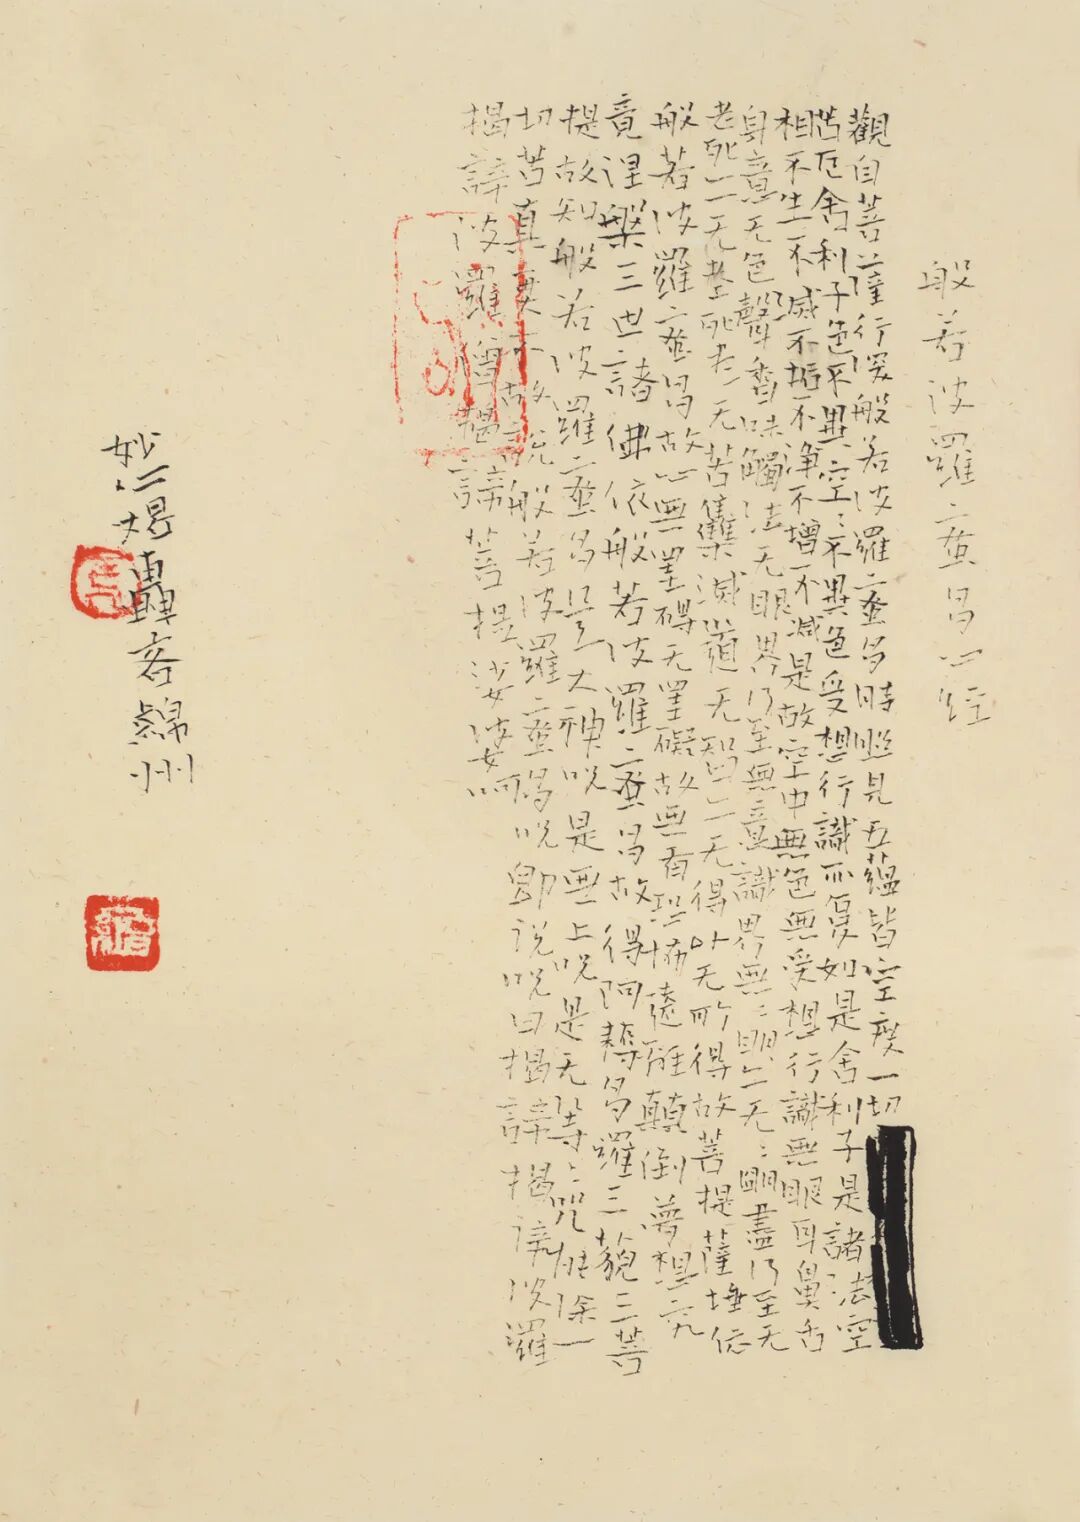 般若波羅蜜多心經
觀自菩薩行深般若波羅蜜多時照見五蘊皆空度一切
苦厄舍利子色不異空〻不異色受想行識亦復如是舍利子是諸法空
相不生不滅不垢不淨不增不減是故空中無色無受想行識無眼耳鼻舌
身意无色聲香味觸法无眼界乃至無意識界無〻明亡无〻明盡乃至无
老死亡无老死盡无苦集滅道无智亡无得以无所得故菩提薩埵依
般若波羅蜜多故心無罣碍无罣礙故無有恐怖遠離顛倒夢想究
竟涅槃三世諸佛依般若波羅蜜多故得阿耨多羅三藐三菩
提故知般若波羅蜜多是大神呪是無上呪是无等〻咒能除一
切苦真實不故説般若波羅蜜多呪卽説呪曰揭諦揭諦波羅
揭諦波羅僧揭諦菩提娑婆呵
妙仁客綿州